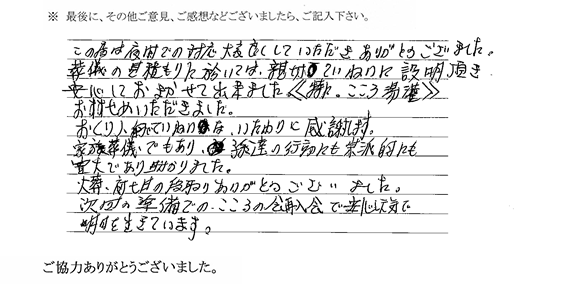 ※ 最後に、その他ご意見、ご感想などございましたら、ご記入下さい。
この度は夜間での対応大変良くしていただきありがとうございました。
葬儀の見積もりに於いては、親切ていねいに説明頂き
安心しておまかせて出来ました《特に。こころ易確》
お材せめいただきました。
おくり人 ていねいな、いたわりに感謝します。
家族葬儀でもあり 派遣の行動にも宗派的にも
寛大であり助かりました。
火葬、初七日の段取りありがとうございました。
次回の準備での、こころの会再入会で安心元気で
明日を生きています。
ご協力ありがとうございました。